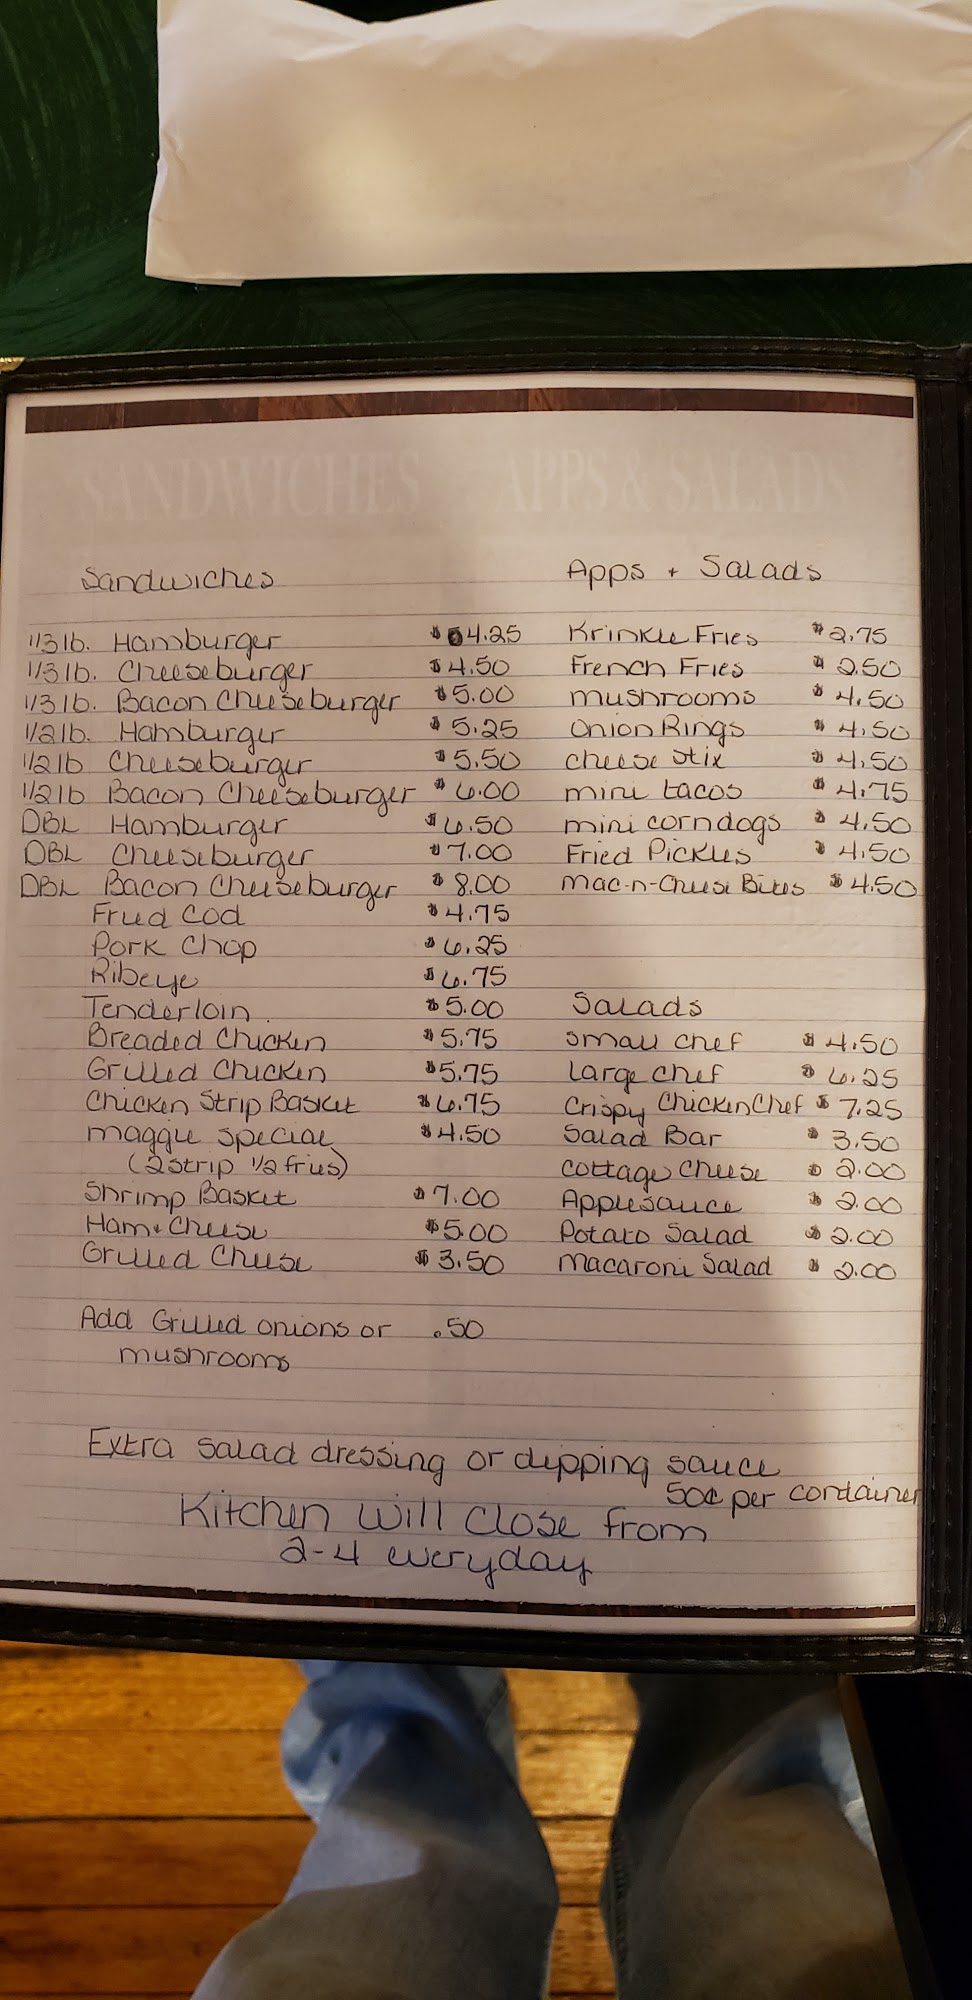 SANDWICHES APPS & SALADS
Sandwiches
1/3 lb. Hamburger $4.25
1/3 lb. Cheeseburger $4.50
1/3 lb. Bacon Cheeseburger $5.00
1/2 lb. Hamburger $5.25
1/2 lb Cheeseburger $5.50
1/2 lb Bacon Cheeseburger $6.00
DBL Hamburger $6.50
DBL Cheeseburger $7.00
DBL Bacon Cheeseburger $8.00
Fried Cod $4.75
Pork Chop $6.25
Ribeye $6.75
Tenderloin $5.00
Breaded Chicken $5.75
Grilled Chicken $5.75
Chicken Strip Basket $6.75
maggie special $4.50
(2 strip 1/2 fries)
Shrimp Basket $7.00
Ham + Cheese $5.00
Grilled Cheese $3.50
Add Grilled onions or .50
mushrooms
Apps + Salads
Krinkle Fries $2.75
French Fries $2.50
mushrooms $4.50
Onion Rings $4.50
cheese stix $4.50
mini tacos $4.75
mini corndogs $4.50
Fried Pickles $4.50
Mac-n-Cheese Bites $4.50
Salads
small chef $4.50
large chef $6.25
Crispy Chicken Chef $7.25
Salad Bar $3.50
cottage cheese $2.00
Applesauce $2.00
Potato Salad $2.00
Macaroni Salad $2.00
Extra salad dressing or dipping sauce
50¢ per container
Kitchen will close from
2-4 everyday